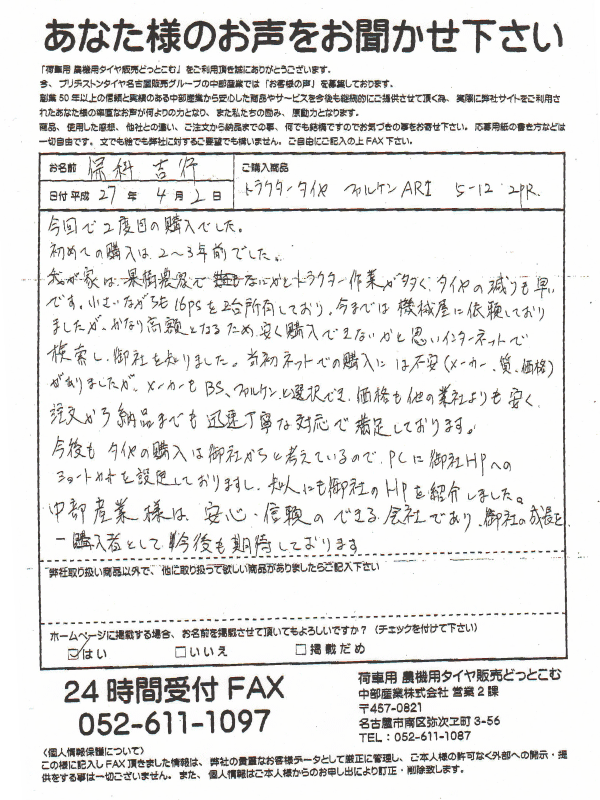 あなた様のお声をお聞かせ下さい
「荷車用 農機用タイヤ販売どっとこむ」をご利用頂き誠にありがとうございます。
今、ブリヂストンタイヤ名古屋販売グループの中部産業では「お客様の声」を募集しております。
創業50年以上の信頼と実績のある中部産業から安心した商品やサービスを今後も継続的にご提供させて頂く為、実際に弊社サイトをご利用さ
れたあなた様の率直なお声が何よりの力となり、また私たちの励み、原動力となります。
商品、使用した感想、他社との違い、ご注文から納品までの事、何でも結構ですのでお気づきの事をお寄せ下さい。応募用紙の書き方などは
一切自由です。文でも絵でも弊社に対するご要望でも構いません。ご自由にご記入の上FAX下さい。
お名前 保科 吉行
ご購入商品
日付 平成 27 年 4 月 2 日
トラクタータイヤ ファルケン AR1 5-12 2PR.
今回で2度目の購入でした。
初めての購入は、2〜3年前でした。
我が家は果樹農家で ないかとトラクター作業が多く、タイヤの減りも早い
です。小さいながらも16psを2台所有しており、今までは機械屋に依頼しており
ましたが、かなり高額となるため、安く購入できないかと思いインターネットで
検索し、御社を知りました。当初ネットでの購入には不安(メーカー、質、価格)
がありましたが、メーカーもBS、ファルケンと選択でき、価格も他の業社よりも安く、
注文から納品までも迅速丁寧な対応で満足しております。
今後もタイヤの購入は御社からと考えているので、PCに御社HPへの
ショートカットを設定しておりますし、知人にも御社のHPを紹介しました。
中部産業様は、安心・信頼のできる会社であり、御社の成長を
一購入者として今後も期待しております
弊社取り扱い商品以外で、他に取り扱って欲しい商品がありましたらご記入下さい
ホームページに掲載する場合、お名前を掲載させて頂いてもよろしいですか？（チェックを付けて下さい）
☑はい □いいえ □掲載だめ
24時間受付 FAX
052-611-1097
荷車用 農機用タイヤ販売どっとこむ
中部産業株式会社 営業2課
〒457-0821
名古屋市南区弥次ヱ町3-56
TEL：052-611-1087
〈個人情報保護について〉
この様に記入しFAX頂きました情報は、弊社の貴重なお客様データとして厳正に管理し、ご本人様の許可なく外部への開示・提
供をする事は一切ございません。また、個人情報はご本人様からのお申し出により訂正・削除致します。